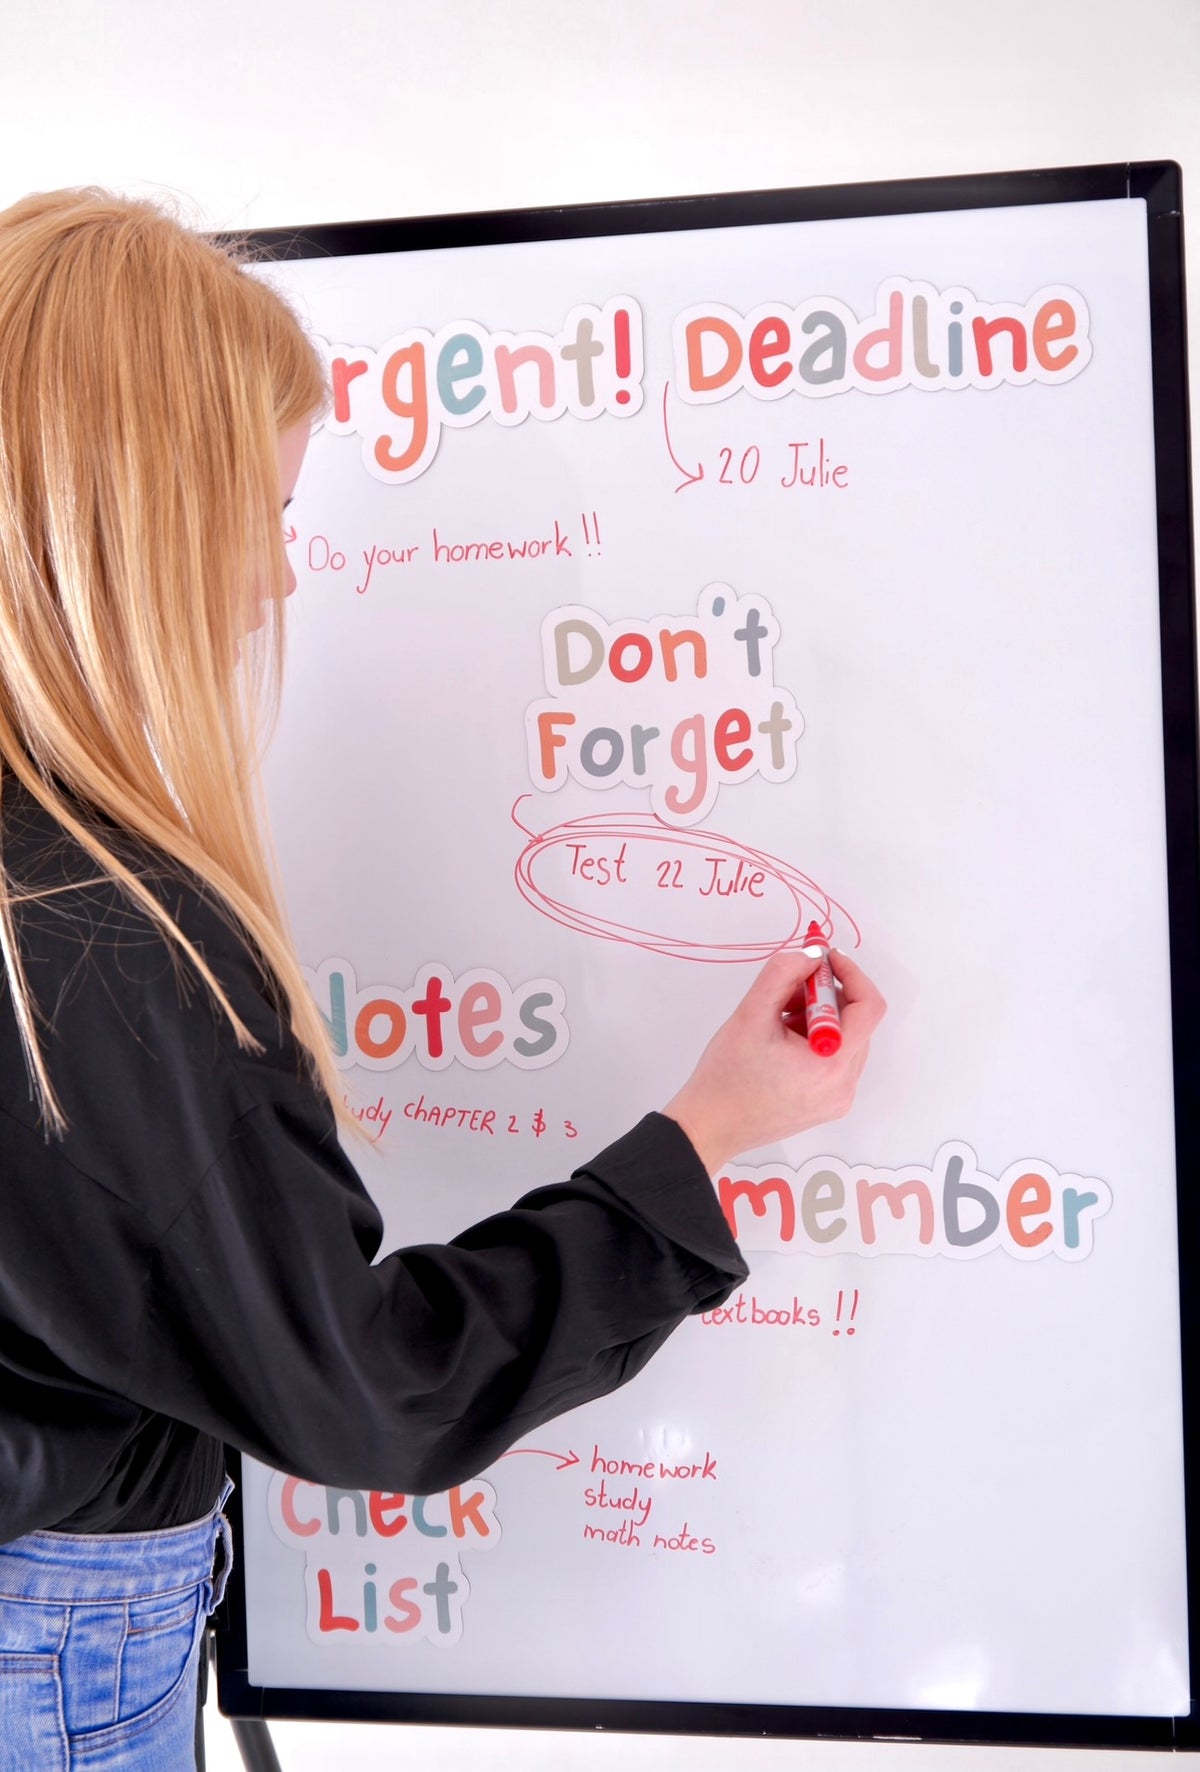 rgent! Deadline
20 Julie
Do your homework !!
Don't
Forget
Test 22 Julie
Notes
tudy chAPTER 2 $ 3
member
textbooks !!
Check
List
homework
study
math notes